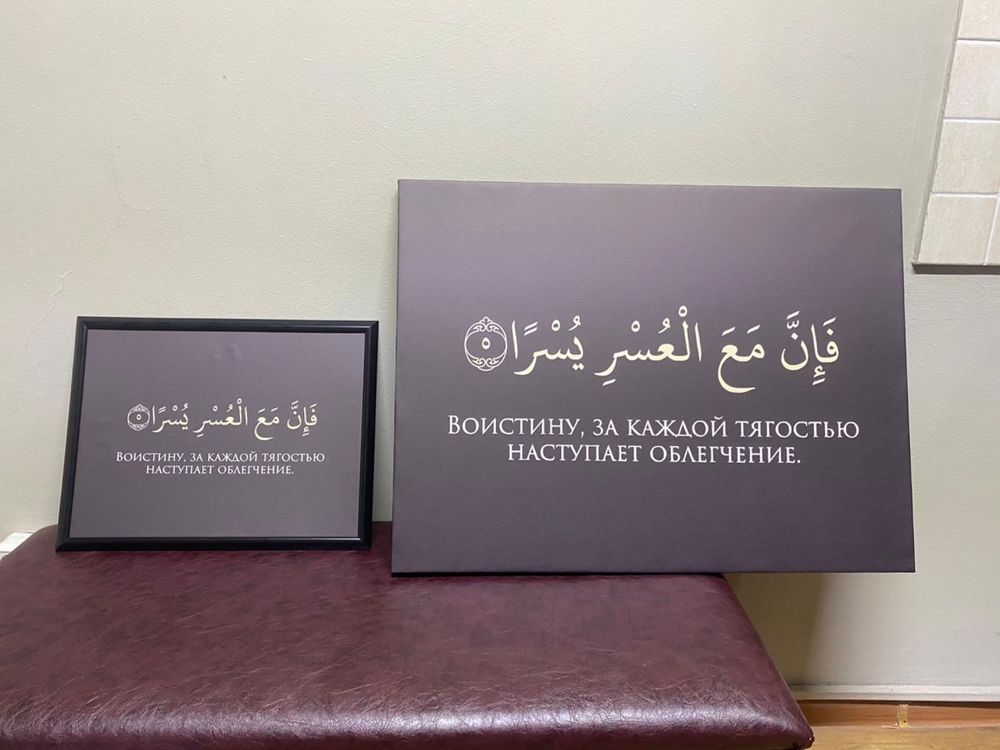 فَإِنَّ مَعَ الْعُسْرِ يُسْرًا ٥
Воистину, за каждой тягостью
наступает облегчение.
فَإِنَّ مَعَ الْعُسْرِ يُسْرًا ٥
Воистину, за каждой тягостью
наступает облегчение.